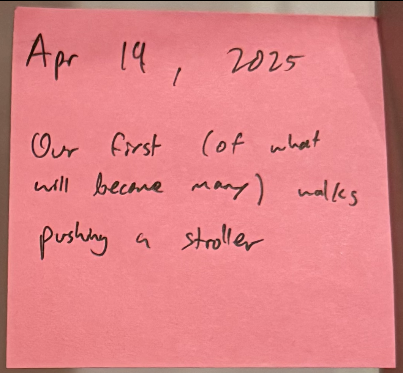 Apr 19, 2025
Our first (of what
will become many) walks
pushing a stroller